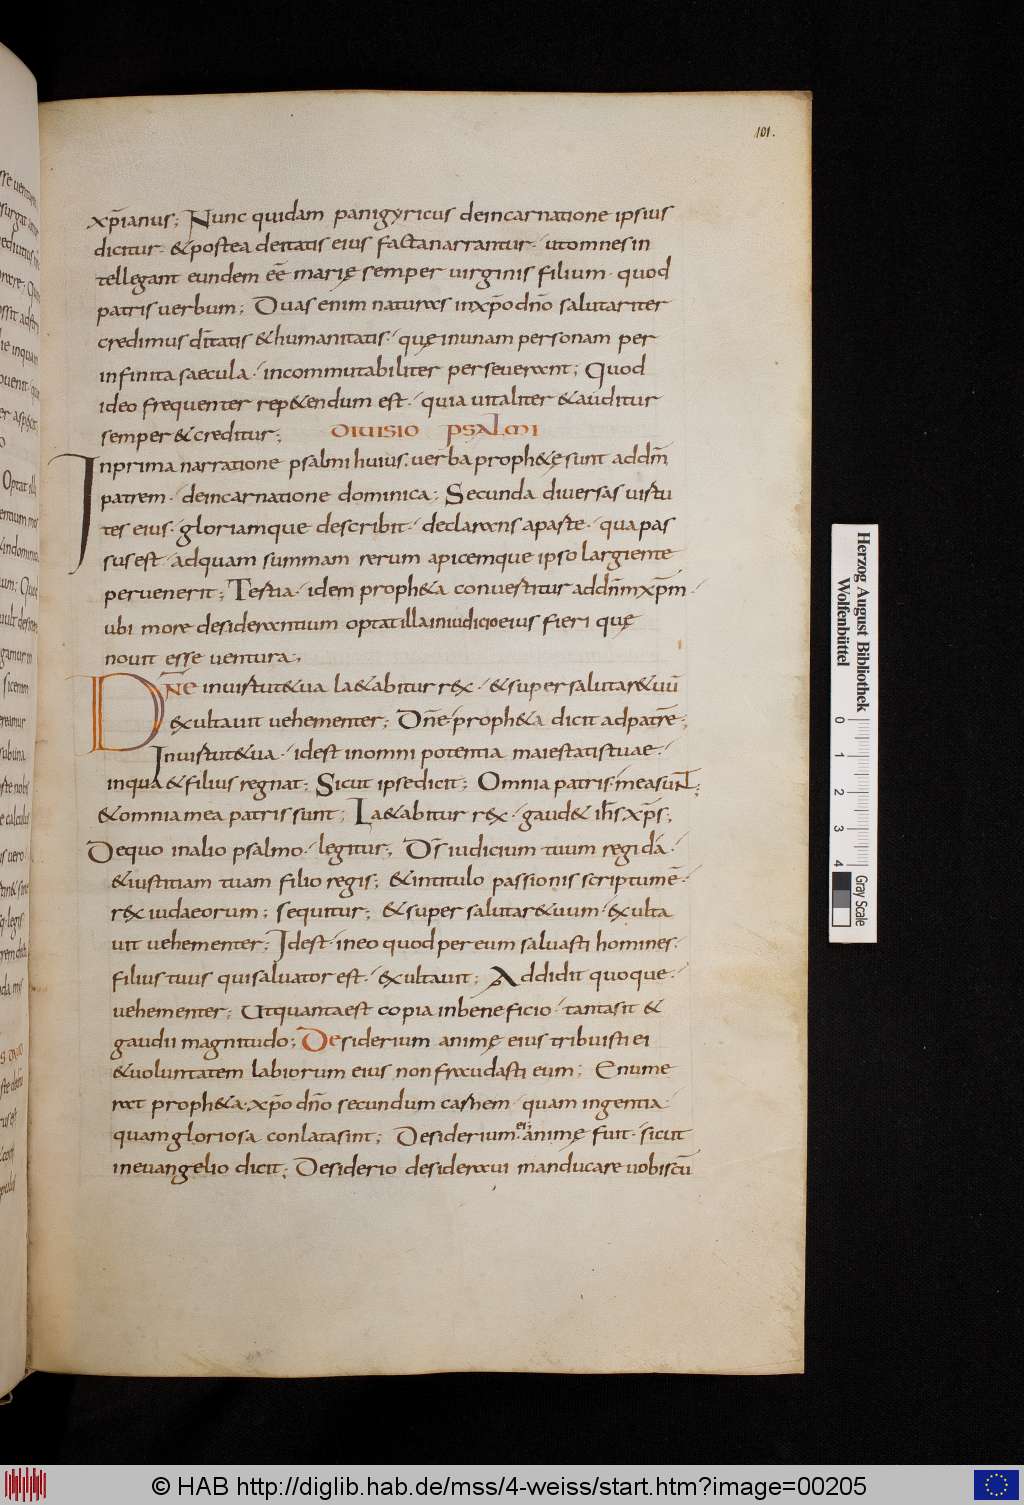 101.
xp̄ianus; Nunc quidam panigyricus deincarnatione ipsius
dicitur· &postea deitatis eius factanarrantur· utomnesin
tellegant eundem eē̄ marię semper uirginis filium· quod
patris uerbum; Duas enim naturas inxp̄o dn̄o salutariter
credimus d̄itatis &humanitatis· quę inunam personam per
infinita saecula· incommutabiliter perseuerant; Quod
ideo frequenter rep&endum est· quia uitaliter &auditur
semper &creditur; DIUISIO PSALMI
Inprima narratione psalmi huius. uerba proph&ę sunt addm̄
patrem· deincarnatione dominica; Secunda diuersas uirtu
tes eius· gloriamque describit· declarans aparte· quapas
sus est· adquam summam rerum apicemque ipso largiente
peruenerit; Tertia· idem proph&a conuertitur addn̄mxp̄m·
ubi more desiderantium optatillainiudicioeius fieri quę
nouit esse uentura;
DN̄e inuirtut&ua la&abitur rex· &super salutar&uū
exultauit uehementer; Dn̄e proph&a dicit adpatrē;
Inuirtut&ua· idest inomni potentia maiestatistuae·
inqua &filius regnat; Sicut ipsedicit; Omnia patris· measunt;
&omnia mea patris sunt; La&abitur rex· gaud& ih̄s xp̄s;
Dequo inalio psalmo· legitur; Ds̄ iudicium tuum regi da·
&iustitiam tuam filio regis; &intitulo passionis scriptumē·
rex iudaeorum; sequitur; &super salutar&uum· exulta
uit uehementer; Idest· ineo quod per eum saluasti homines;
filius tuus qui saluator est· exultauit; Addidit quoque·
uehementer; Utquantaest copia inbeneficio· tantasit &
gaudii magnitudo; Desiderium animę eius tribuisti ei
&uoluntatem labiorum eius non fraudasti eum; Enume
rat proph&a· xp̄o dn̄o secundum carnem· quam ingentia·
quamgloriosa conlatasint; Desiderium ei; animę fuit· sicut
ineuangelio dicit; Desiderio desideraui manducare uobiscū
Herzog August Bibliothek
Wolfenbüttel
0 1 2 3 4
Gray Scale
© HAB http://diglib.hab.de/mss/4-weiss/start.htm?image=00205